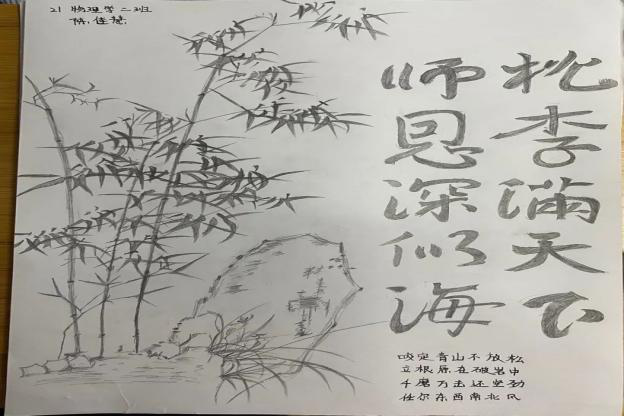 21 物理学二班
陈佳慧
桃李满天下
师恩深似海
咬定青山不放松
立根原在破岩中
千磨万击还坚劲
任尔东西南北风